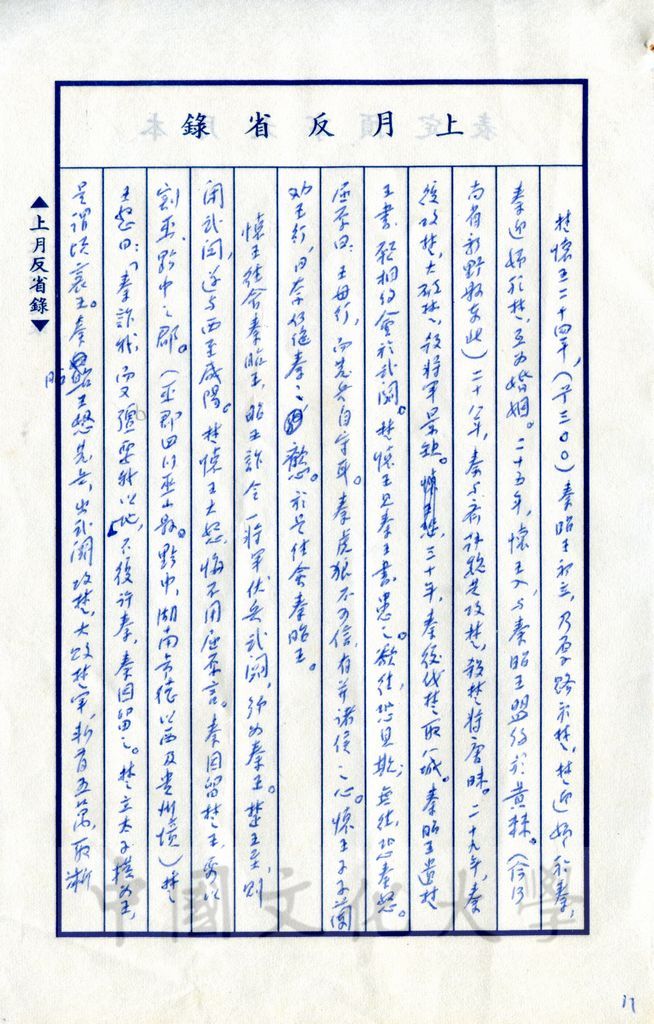 上月反省錄
楚懷王二十四年,(ㄅ三〇〇)秦昭王初立,乃厚賂於楚,楚迎婦於秦,
秦迎婦於楚,互為婚姻。二十五年,懷王入與秦昭王盟約於黃棘。(今河
南省新野縣東北)二十八年,秦與齊韓魏共攻楚,殺楚將唐昧。二十九年,秦
復攻楚,大破楚,殺將軍景缺。三十年,秦復伐楚,取八城。秦昭王遺楚
王書,願相約會於武關。楚懷王見秦王書,患之。欲往,恐見欺;無往,恐秦怒。
屈原曰:王毋行,而發兵自守耳。秦虎狼不可信,有并諸侯之心。懷王子子蘭
勸王行,曰奈何絕秦之歡心。於是往會秦昭王。
懷王往會秦昭王,昭王詐令一將軍伏兵武關,號為秦王。楚王至,則
閉武關,遂與西至咸陽。楚懷王大怒,悔不用屈原言。秦因留楚王,要以
割巫、黔中之郡。(巫郡四川巫山縣。黔中,湖南常德以西及貴州境)楚
王怒曰:「秦詐我,而又強要我以地」不復許秦,秦因留之。楚立太子橫為王,
是謂頃襄王。秦昭王怒,發兵出武關攻楚,大敗楚軍,斬首五萬,取淅
▲上月反省錄▼
中國文化大學
17